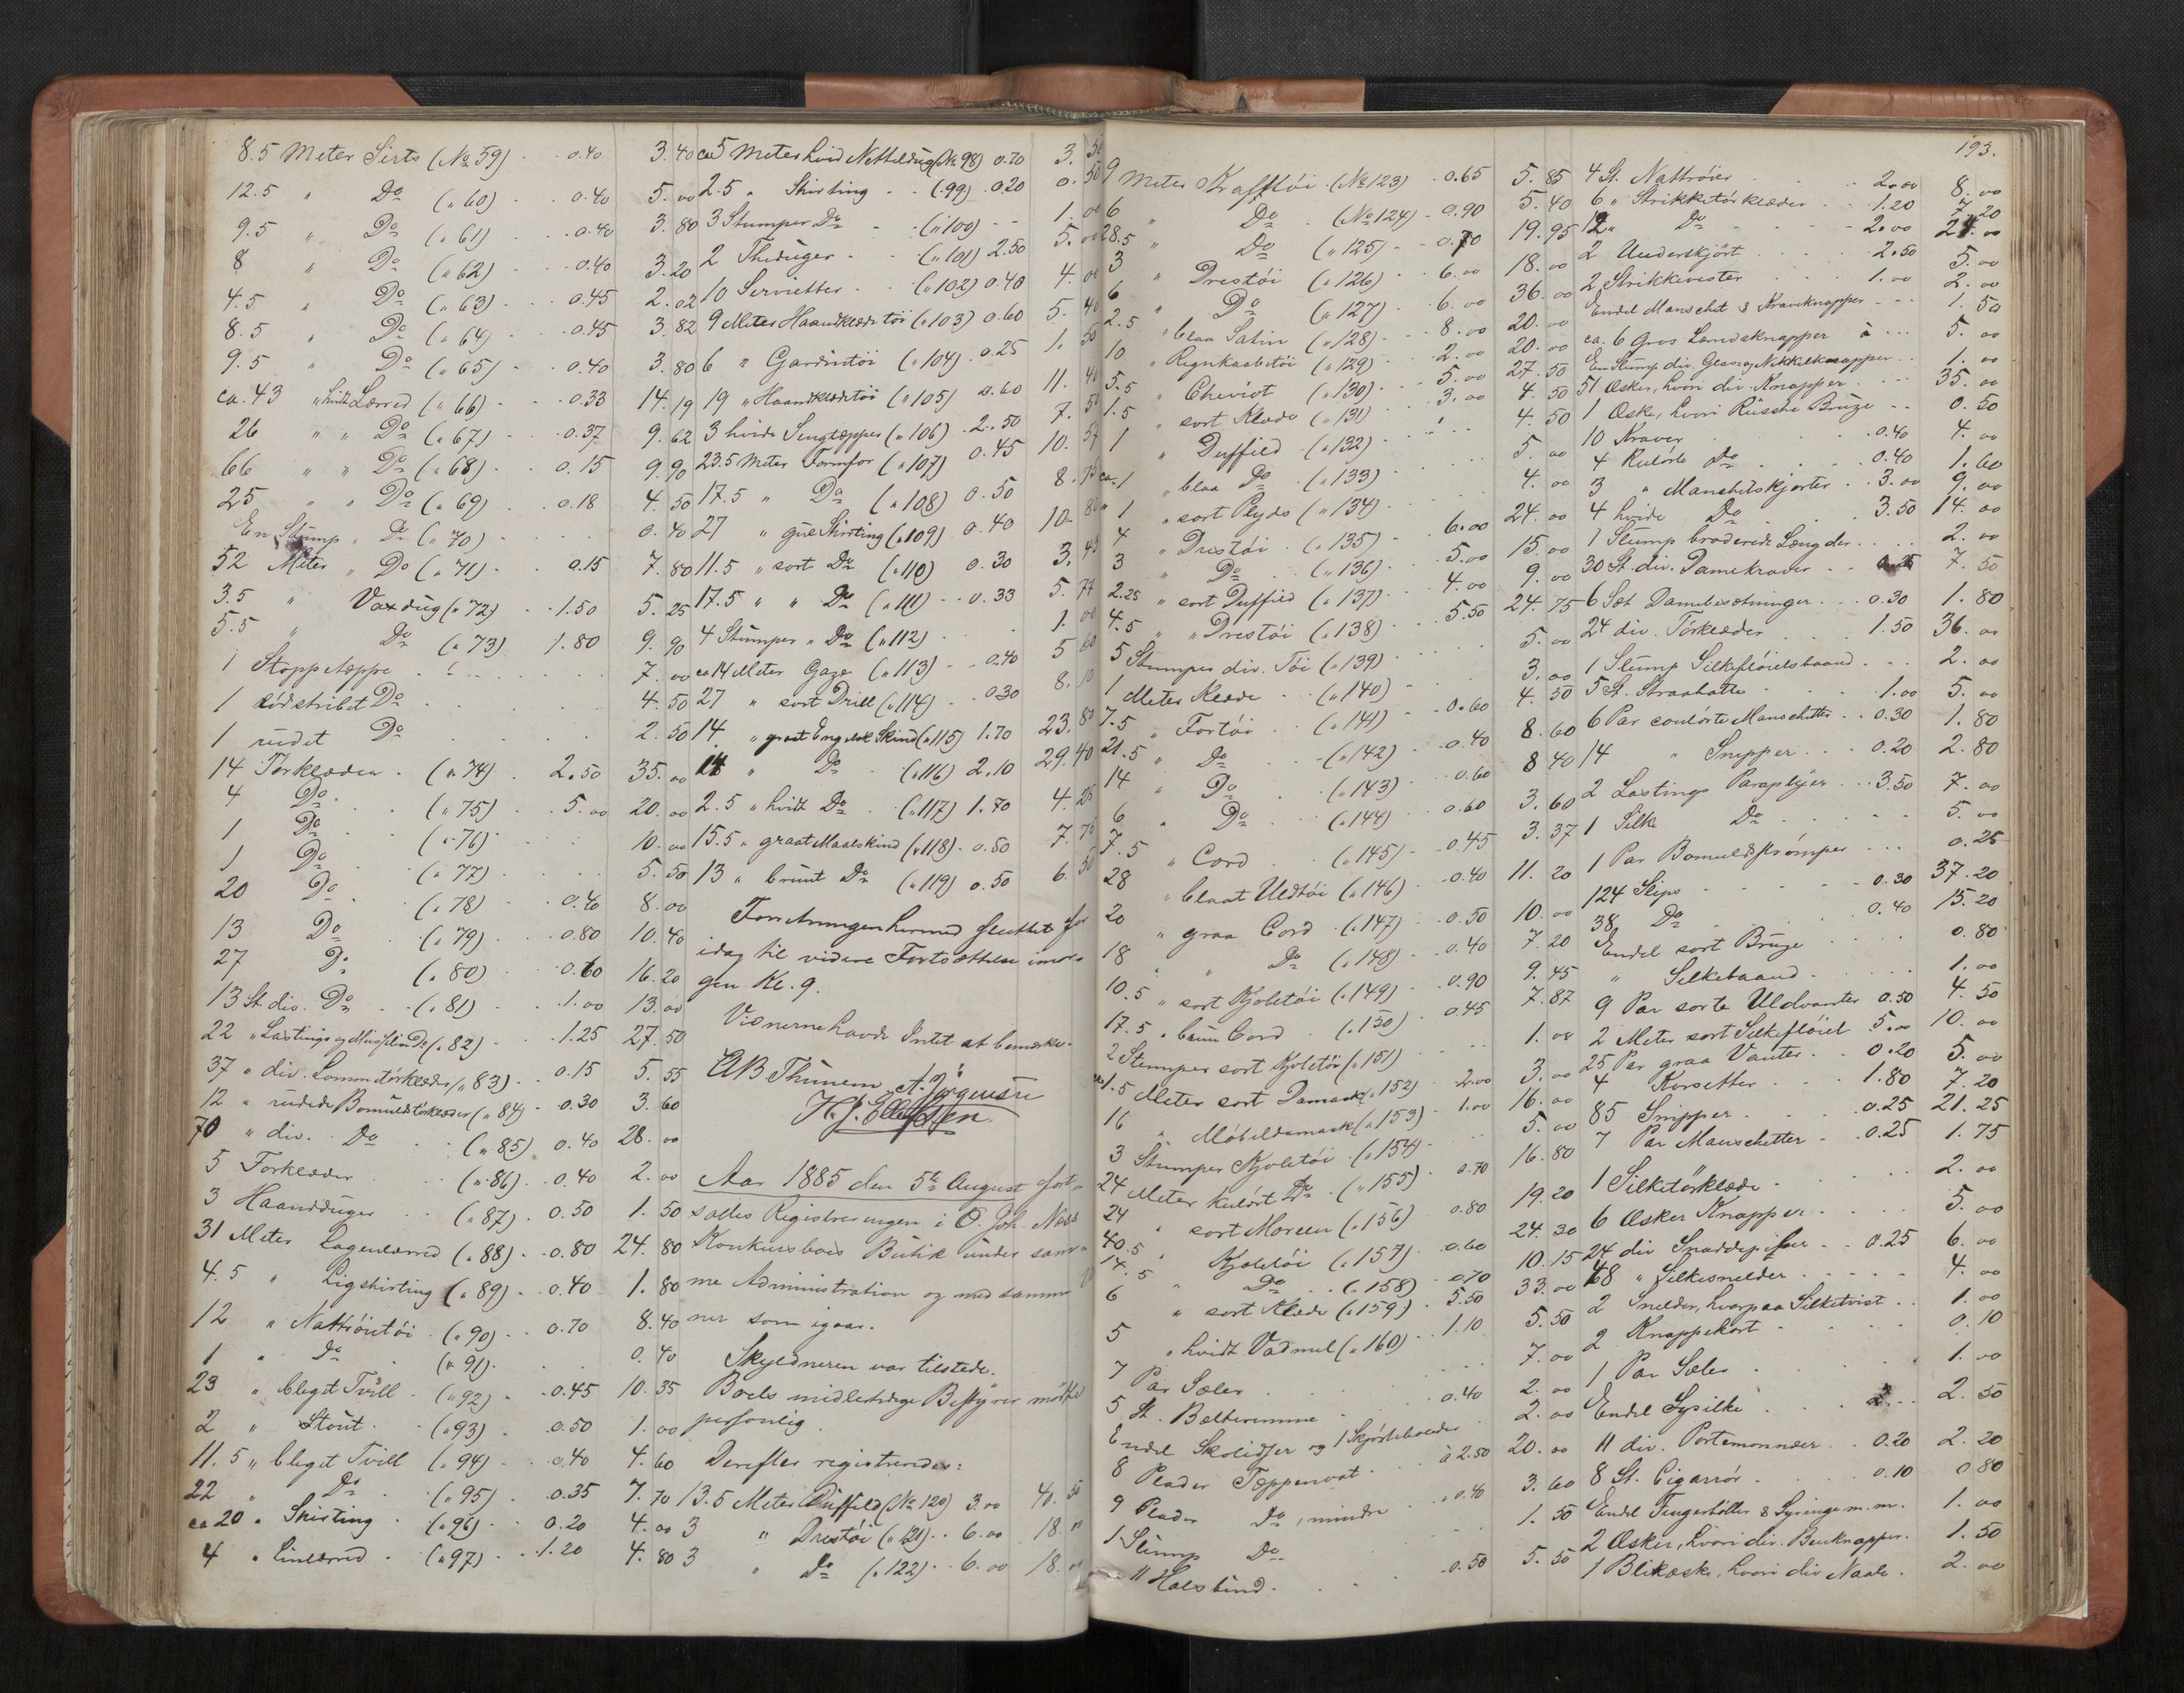 8.5 Meter Sirts (No 59) 0.40 3.40
12.5 " Do (" 60) 0.40 5.00
9.5 " Do (" 61) 0.40 3.80
8 " Do (" 62) 0.40 3.20
4.5 " Do (" 63) 0.45 2.02
8.5 " Do (" 64) 0.45 3.82
9.5 " Do (" 65) 0.40 3.80
ca. 43 " hvidt Lærred (" 66) 0.33 14.19
26 " " Do (" 67) 0.37 9.62
66 " " Do (" 68) 0.15 9.90
25 " " Do (" 69) 0.18 4.50
En Stump " Do (" 70) 0.40
52 Meter " Do (" 71) 0.15 7.80
3.5 " Voxdug (" 72) 1.50 5.25
5.5 " Do (" 73) 1.80 9.90
1 Stoppetæppe 7.00
1 rödstribet Do 4.50
1 rudet Do 2.50
14 Törklæder (" 74) 2.50 35.00
4 Do (" 75) 5.00 20.00
1 Do (" 76) 10.00
1 Do (" 77) 5.50
20 Do (" 78) 0.40 8.00
13 Do (" 79) 0.80 10.40
27 Do (" 80) 0.60 16.20
13 St. div. Do (" 81) 1.00 13.00
22 " Lastings og Musselin Do (" 82) 1.25 27.50
37 " div. Lommetörklæder (" 83) 0.15 5.55
12 " rudede Bomuldstörklæder (" 84) 0.30 3.60
70 " div. Do (" 85) 0.40 28.00
5 Forklæder (" 86) 0.40 2.00
3 Haandduger (" 87) 0.50 1.50
31 Meter Lagenlærred (" 88) 0.80 24.80
4.5 " Ligskirting (" 89) 0.40 1.80
12 " Nattröietöi (" 90) 0.70 8.40
1 " Do (" 91) 0.40
23 " bleget Tvill (" 92) 0.45 10.35
2 " Stout (" 93) 0.50 1.00
11.5 " bleget Tvill (" 94) 0.40 4.60
22 " Do (" 95) 0.35 7.70
ca 20 " Skirting (" 96) 0.20 4.00
4 " Linlærred (" 97) 1.20 4.80
ca 5 Meter hvid Netteldug (No 98) 0.70 3.50
2.5 " Skirting (" 99) 0.20 0.50
3 Stumper Do (" 100) 1.00
2 Theduger (" 101) 2.50 5.00
10 Servietter (" 102) 0.40 4.00
9 Meter Haandklædetöi (" 103) 0.60 5.40
6 " Gardintöi (" 104) 0.25 1.50
19 " Haandklædetöi (" 105) 0.60 11.40
3 hvide Sengtæpper (" 106) 2.50 7.50
23.5 Meter Formfor (" 107) 0.45 10.57
17.5 " Do (" 108) 0.50 8.75
27 " gul Skirting (" 109) 0.40 10.80
11.5 " sort Do (" 110) 0.30 3.45
17.5 " " Do (" 111) 0.33 5.77
4 Stumper " Do (" 112) 1.00
ca 14 Meter Gaze (" 113) 0.40 5.60
27 " sort Drill (" 114) 0.30 8.10
14 " graat Engelsk Skind (" 115) 1.70 23.80
14 " Do (" 116) 2.10 29.40
2.5 " hvidt Do (" 117) 1.70 4.25
15.5 " graat Maalskind (" 118) 0.50 7.75
13 " brunt Do (" 119) 0.50 6.50
Forretningen hermed sluttet for
idag til videre Fortsættelse imor-
gen Kl. 9.
Vidnerne havde Intet at bemærke.
AB Thunem A. Jörgensen
H. J. Ellefsen
Aar 1885 den 5te August fort-
sattes Registreringen i O. Joh. Næss
Konkursbos Butik under sam-
me Administration og med samme
ner som igaar.
Skyldneren var tilstede.
Boets midlertidige Bestyrer mødte
personlig.
Derefter registreredes:
13.5 Meter Duffeld (No 120) 3.00 40.50
3 " Drestöi (" 121) 6.00 18.00
3 " Do (" 122) 6.00 18.00
193.
9 Meter Krafttöi (No 123) 0.65 5.85
6 " Do (No 124) 0.90 5.40
28.5 " Do (" 125) 0.70 19.95
3 " Drestöi (" 126) 6.00 18.00
6 " Do (" 127) 6.00 36.00
2.5 " blaa Satin (" 128) 8.00 20.00
10 " Regnkaabetöi (" 129) 2.00 20.00
5.5 " Cheviot (" 130) 5.00 27.50
1.5 " sort Klæde (" 131) 3.00 4.50
1 " Duffeld (" 132) 4.50
ca. 1 " blaa Do (" 133) 5.00
" 1 " sort Plyds (" 134) 4.00
4 " Drestöi (" 135) 6.00 24.00
3 " Do (" 136) 5.00 15.00
2.25 " sort Duffeld (" 137) 4.00 9.00
4.5 " " Drestöi (" 138) 5.50 24.75
5 Stumper div. Töi (" 139) 5.00
1 Meter Klæde (" 140) 3.00
7.5 " Fortöi (" 141) 0.60 4.50
21.5 " Do (" 142) 0.40 8.60
14 " Do (" 143) 0.60 8.40
6 " Do (" 144) 0.60 3.60
7.5 " Cord (" 145) 0.45 3.37
28 " blaat Uldtöi (" 146) 0.40 11.20
20 " graa Cord (" 147) 0.50 10.00
18 " " Do (" 148) 0.40 7.20
10.5 " sort Kjoletöi (" 149) 0.90 9.45
17.5 " brun Cord (" 150) 0.45 7.87
2 Stumper sort Kjoletöi (" 151) 1.00
1.5 Meter sort Damask (" 152) 2.00 3.00
16 " Möbeldamask (" 153) 1.00 16.00
3 Stumper Kjoletöi (" 154) 5.00
24 Meter kulört Do (" 155) 0.70 16.80
24 " sort Moreen (" 156) 0.80 19.20
40.5 " Kjoletöi (" 157) 0.60 24.30
14.5 " Do (" 158) 0.70 10.15
6 " sort Klæde (" 159) 5.50 33.00
5 " hvidt Vadmel (" 160) 1.10 5.50
7 Par Sæler 7.00
5 St. Bælteremme 0.40 2.00
Endel Skolidser og 1 Skjörteholder 2.00
8 Plader Tæppevat à 2.50 20.00
9 Plader Do, mindre " 0.40 3.60
1 Stump Do 1.50
11 Halsbind 0.50 5.50
4 St. Nattröier 2.00 8.00
6 " Strikketörklæder 1.20 7.20
12 " Do 2.00 24.00
2 Underskjört 2.50 5.00
2 Strikkevester 1.00 2.00
Endel Manschet & Kraveknapper 1.50
ca. 6 Gros Lærredsknapper à 5.00
En Stump div. Glas og Nikkelknapper 1.00
51 Æsker, hvori div. Knapper 35.00
1 Æske, hvori Rüsche Brüge 0.50
10 Kraver 0.40 4.00
4 Kulörte Do 0.40 1.60
3 " Manchetskjorter 3.00 9.00
4 hvide Do 3.50 14.00
1 Stump broderede Længder 2.00
30 St. div. Damekraver 0.25 7.50
6 Sæt Damebesætninger 0.30 1.80
24 div. Törklæder 1.50 36.00
1 Stump Silkeflöielsbaand 2.00
5 St. Straahatte 1.00 5.00
6 Par coulörte Manschetter 0.30 1.80
14 " Snipper 0.20 2.80
2 Lastings Paraplyer 3.50 7.00
1 Silke Do 5.00
1 Par Bomuldströmper 0.25
124 Slips 0.30 37.20
38 Do 0.40 15.20
Endel sort Brüge 0.80
" Silkebaand 1.00
9 Par sorte Uldvanter 0.50 4.50
2 Meter sort Silkeflöiel 5.00 10.00
25 Par graa Vanter 0.20 5.00
4 Korsetter 1.80 7.20
85 Snipper 0.25 21.25
7 Par Manschetter 0.25 1.75
1 Silketörklæde 2.00
6 Æsker Knapper 5.00
24 div Snaddepiber 0.25 6.00
48 " Silkesnelder 4.00
2 Snelder, hvorpaa Silketvist 1.00
2 Knappekort 0.10
1 Par Sæler 1.00
Endel Sysilke 2.50
11 div. Portemonnæer 0.20 2.20
8 St. Cigarrör 0.10 0.80
Endel Fingerbøller & Syringe m.m. 1.00
2 Æsker, hvori div. Benknapper 1.50
1 Blikæske, hvori div Naale 2.00